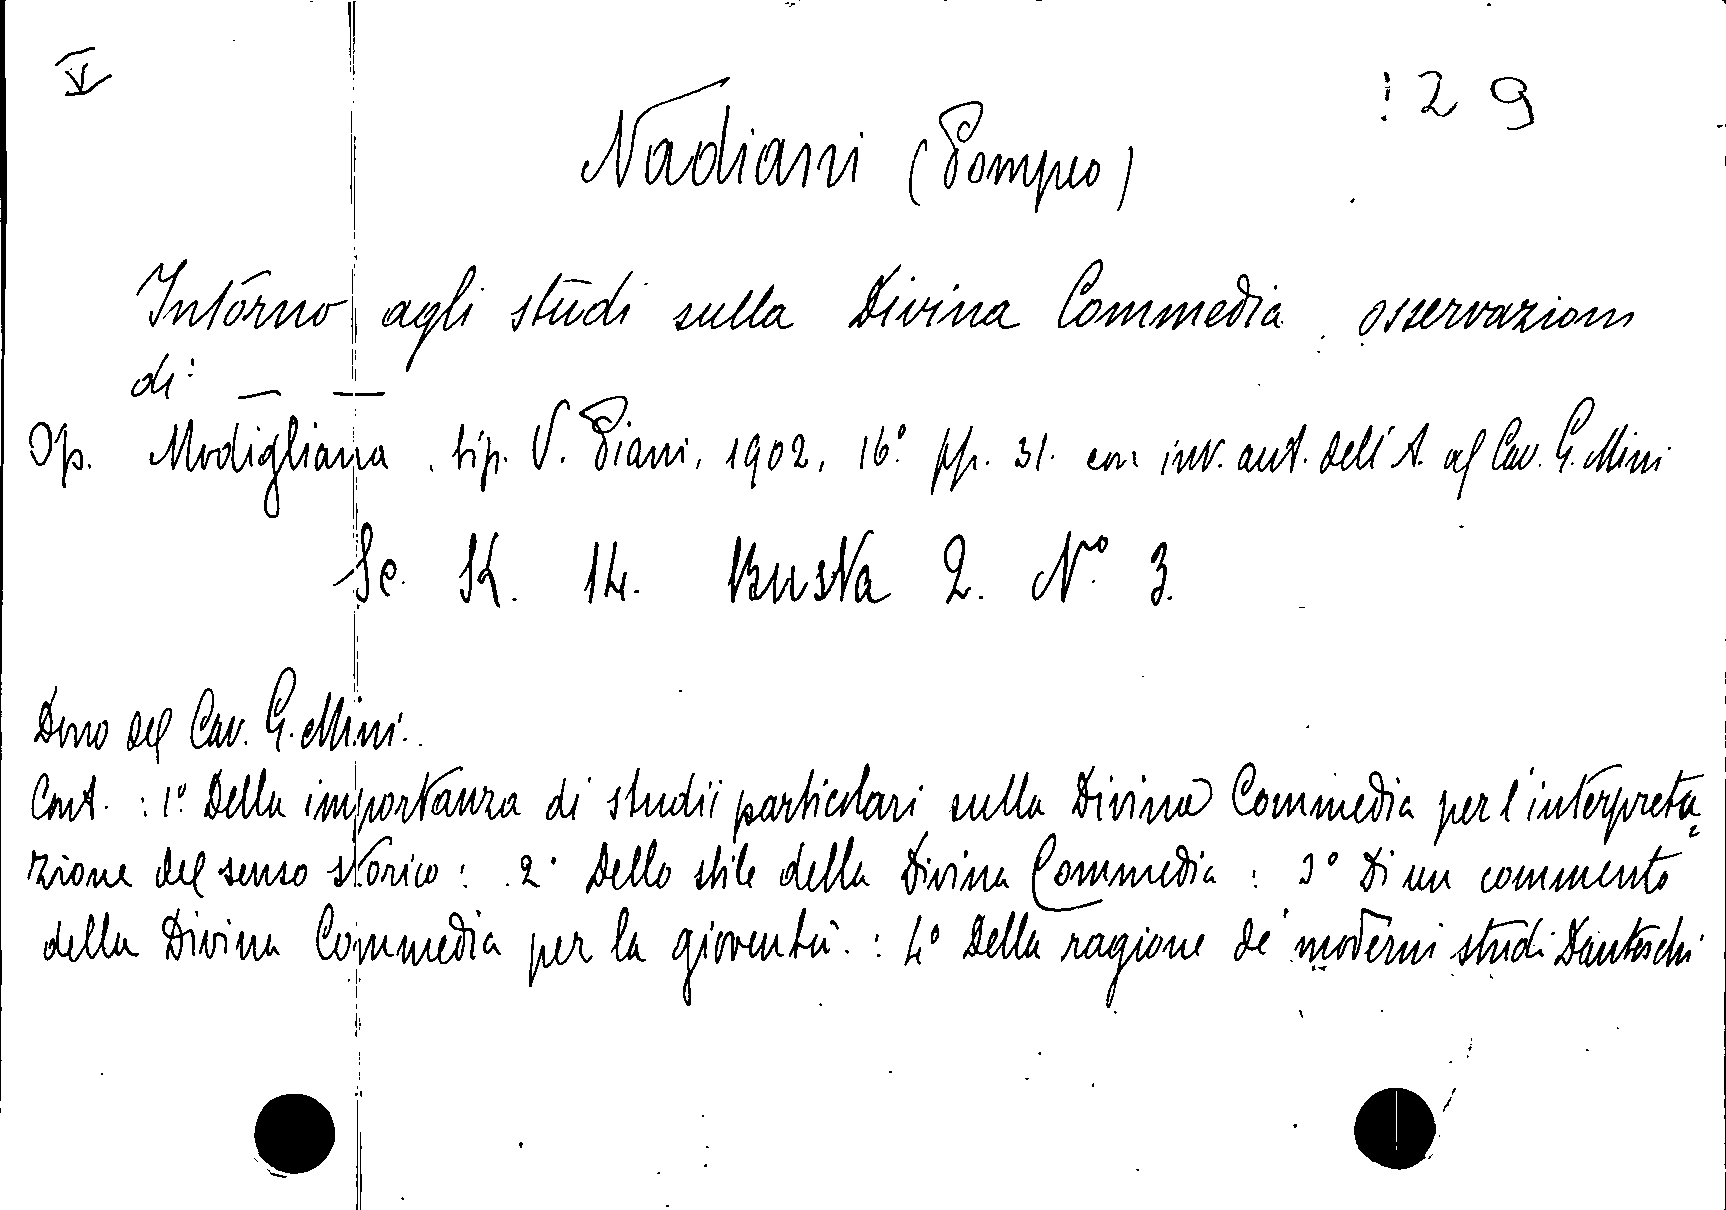 V
29
Nadiani (Pompeo)
Intorno agli studi sulla Divina Commedia. osservazioni
di: — —
Op. Modigliana. tip. V. Piani, 1902, 16° pp. 31. con inv. aut. dell'A. al Cav. G. Mini
Sc. K. 14. Busta 2. N° 3.
Dono del Cav. G. Mini.
Cont. : 1° Della importanza di studii particolari sulla Divina Commedia per l'interpreta=
zione del senso storico : 2° Dello stile della Divina Commedia : 3° Di un commento
della Divina Commedia per la gioventù. : 4° Della ragione de' moderni studi Danteschi